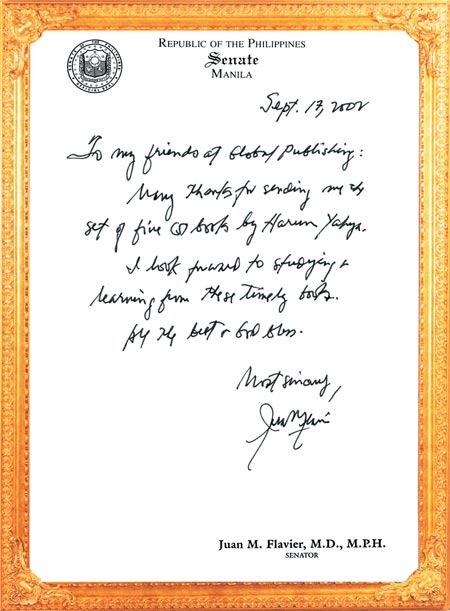 REPUBLIC OF THE PHILIPPINES
Senate
MANILA
Sept. 17, 2002
To my friends at Global Publishing:
Many thanks for sending me the
set of five books by Harun Yahya.
I look forward to studying &
learning from these timely books.
All the best & God bless.
Most sincerely,
Juan M. Flavier, M.D., M.P.H.
SENATOR